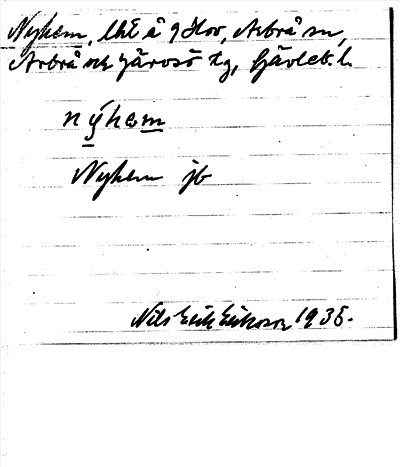 Nyhem, lht å 9 Hov, Arbrå sn,
Arbrå och Järvsö tg, Gävleb. l.
nýhem
Nyhem jb
Nils Erik Eriksson 1935.